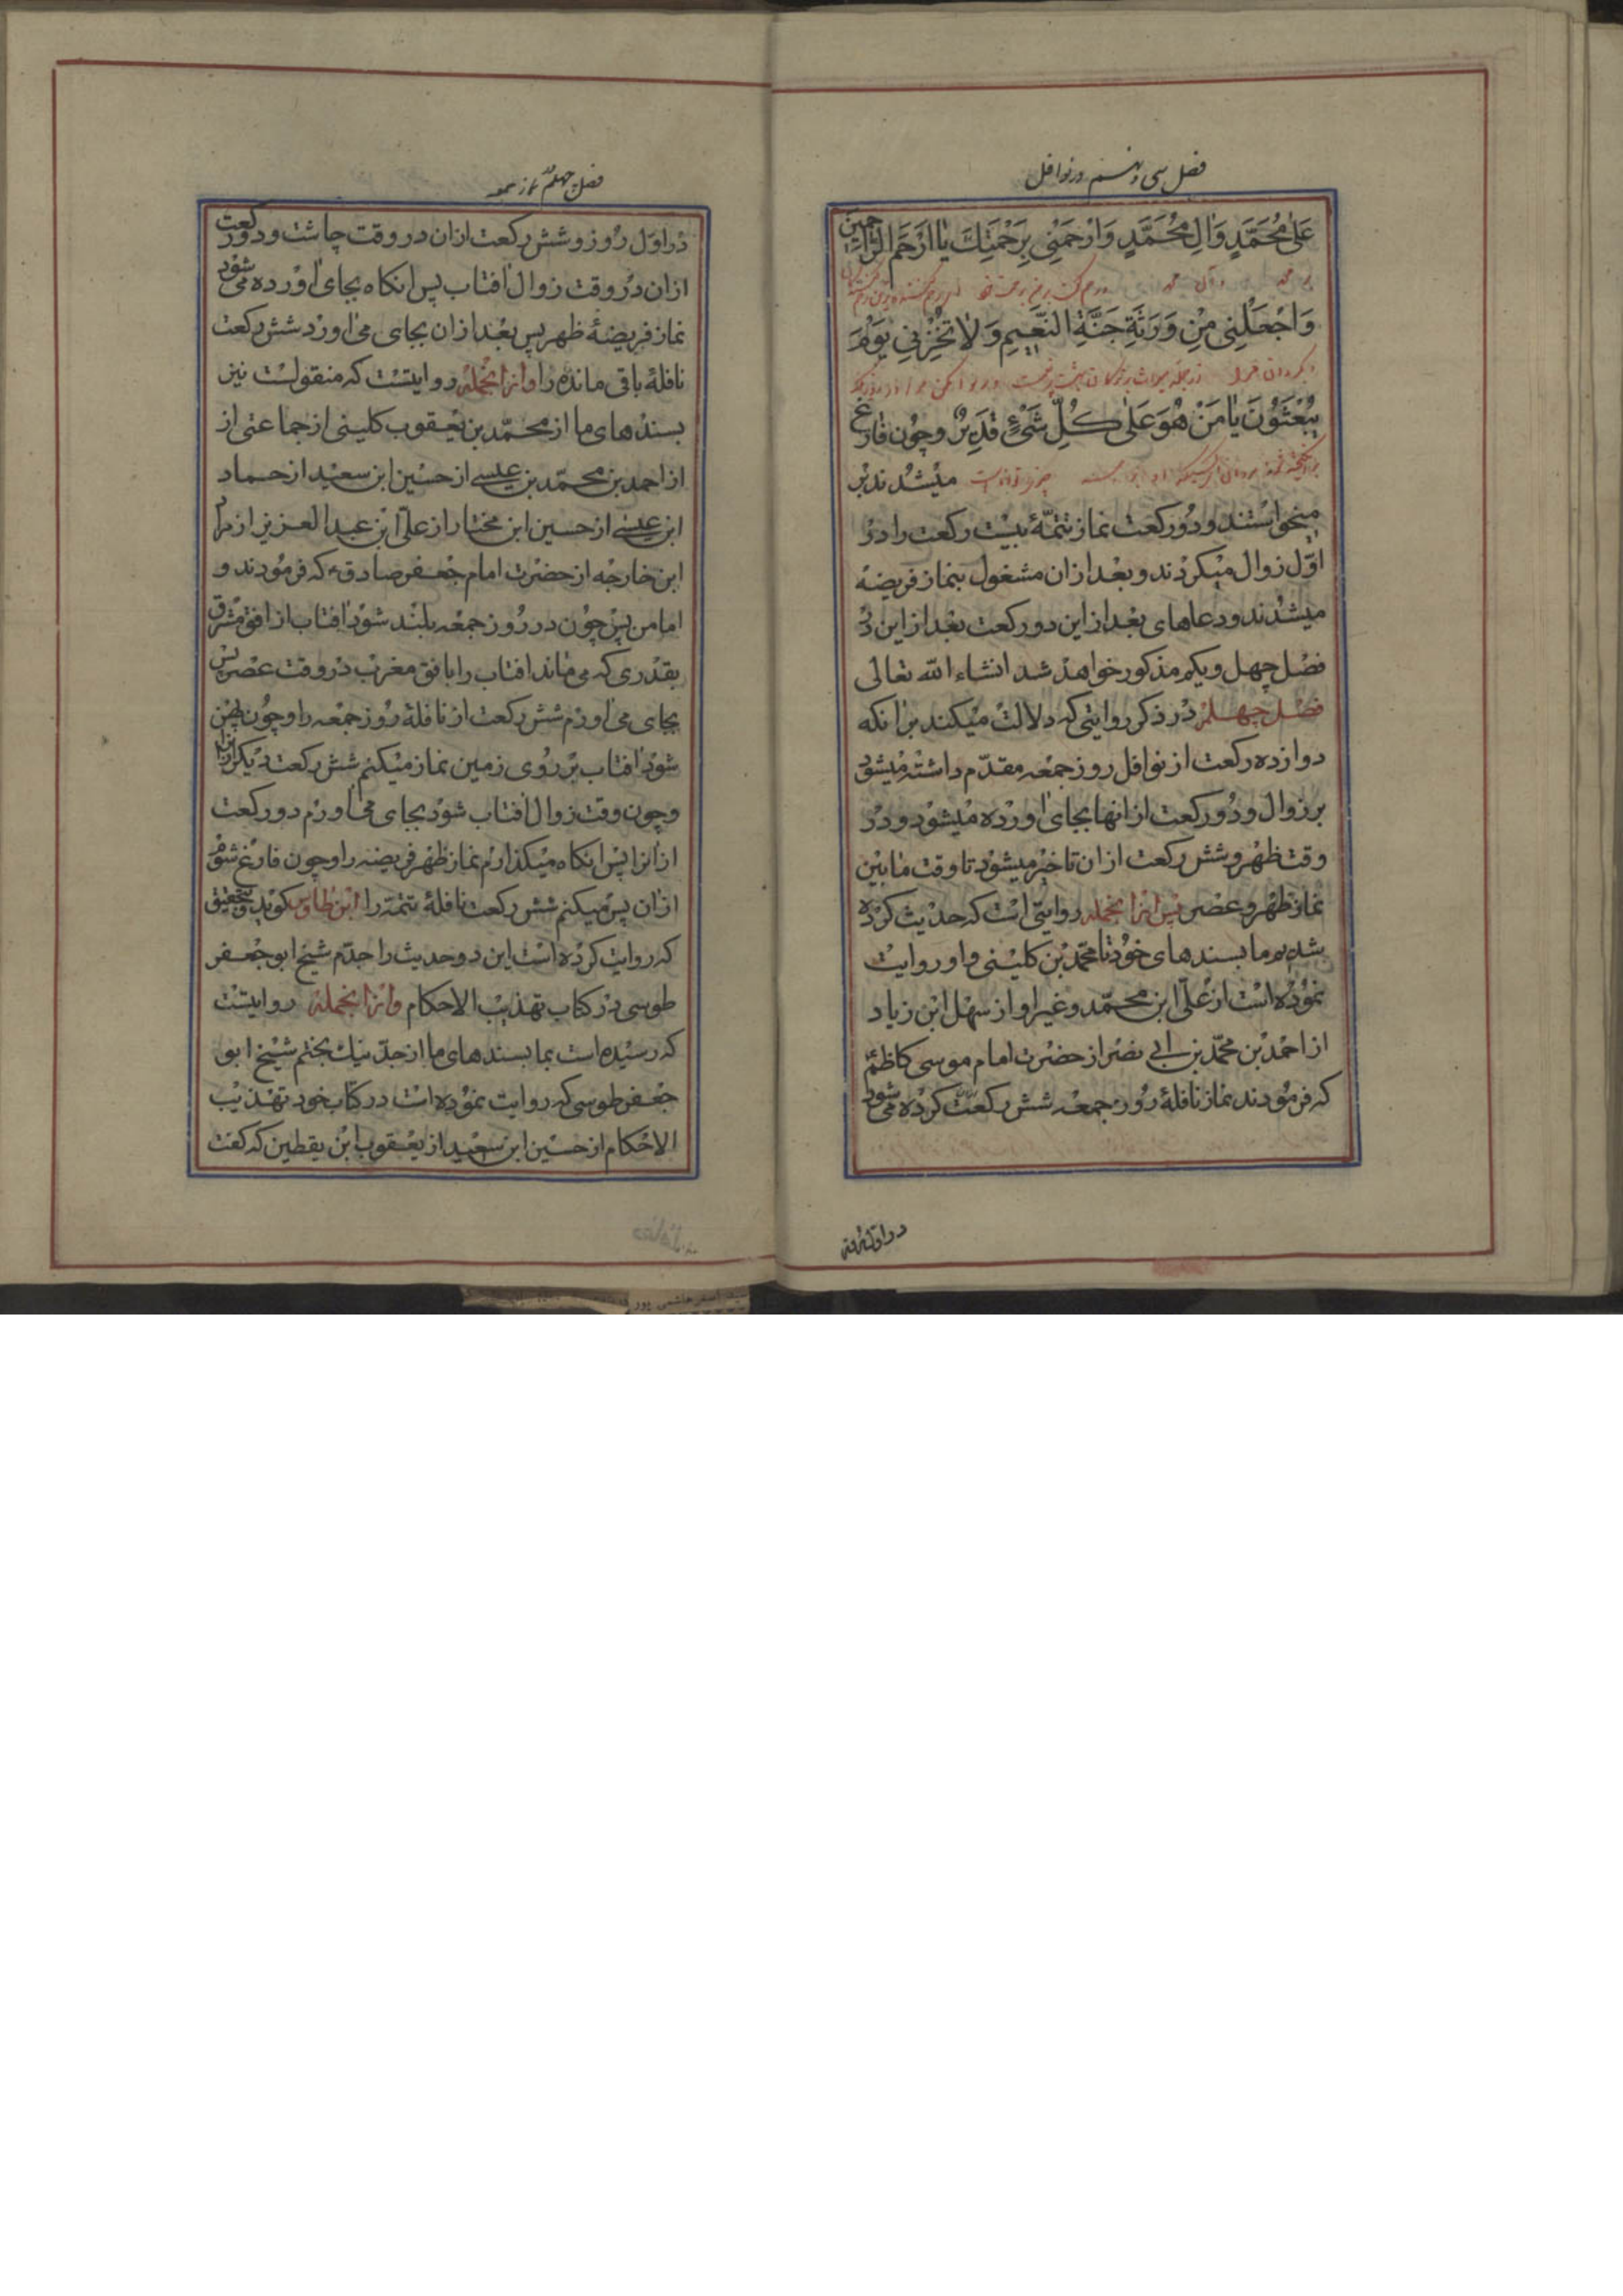 فصل سی و نهم در نوافل
عَلىٰ مُحَمَّدٍ وَاٰلِ مُحَمَّدٍ وَارْحَمْنِی بِرَحْمَتِكَ يَا اَرْحَمَ الرَّاحِمِينَ
بر محمد و آل محمد و رحم کن برحمت خود
وَاجْعَلْنِی مِنْ وَرَثَةِ جَنَّةِ النَّعِيمِ وَلَا تُخْزِنِی يَوْمَ
و بگردان مرا از جمله
يُبْعَثُونَ يَا مَنْ هُوَ عَلٰى كُلِّ شَیْءٍ قَدِيرٌ وچون فارغ
میشدند بر
میخواستند ودو رکعت نماز تتمّهٔ بیست رکعت را در
اوّل زوال میکردند وبعد ازان مشغول بنماز فریضه
میشدند ودعاهای بعد از این دو رکعت بعد از این در
فصل چهل ویکم مذکور خواهد شد انشاء الله تعالی
فصل چهلم در ذکر روایتی که دلالت میکند بر انکه
دوازده رکعت از نوافل روز جمعه مقدّم داشته میشود
بر زوال ودو رکعت از انها بجای اورده میشود ودر
وقت ظهر وشش رکعت ازان تاخیر میشود تا وقت مابین
نماز ظهر وعصر پس ازانجمله روایتی است که حدیث کرده
شده بر ما بسندهای خود تا محمد بن کلینی واو روایت
نموده است از علی ابن محمّد وغیر او از سهل ابن زیاد
از احمد بن محمّد بن ابی نصر از حضرت امام موسی کاظم
که فرمودند نماز نافلهٔ روز جمعه شش رکعت کرده می شود
در اول
فصل چهلم نماز جمعه
در اوّل روز وشش رکعت ازان در وقت چاشت ودو رکعت
ازان در وقت زوال افتاب پس انکاه بجای اورده می شود
نماز فریضهٔ ظهر پس بعد ازان بجای می اورد شش رکعت
نافلهٔ باقی مانده را وازانجمله روایتست که منقولست نیز
بسندهای ما از محمّد بن یعقوب کلینی از جماعتی از
از احمد بن محمّد بن عیسی از حسین ابن سعید از حماد
ابن عیسی از حسین ابن مختار از علی ابن عبد العزیز از مراد
ابن خارجه از حضرت امام جعفر صادق ع که فرمودند و
اما من پس چون در روز جمعه بلند شود افتاب از افق مشرق
بقدری که می ماند افتاب را با افق مغرب در وقت عصر پس
بجای می اورم شش رکعت از نافلهٔ روز جمعه را وچون پهن
شود افتاب بر روی زمین نماز میکنم شش رکعت دیکر از انرا
وچون وقت زوال افتاب شود بجای می اورم دو رکعت
از انرا پس انکاه میکذارم نماز ظهر فریضه را وچون فارغ شوم
ازان پس میکنم شش رکعت نافلهٔ تتمّه را ابن طاوس کوید وبتحقیق
که روایت کرده است این دو حدیث را جدّم شیخ ابو جعفر
طوسی در کتاب تهذیب الاحکام وازانجمله روایتست
که رسیده است بما بسندهای ما از جدّ نیک بختم شیخ ابو
جعفر طوسی که روایت نموده است در کتاب خود تهذیب
الاحکام از حسین ابن سعید از یعقوب ابن یقطین که کفت